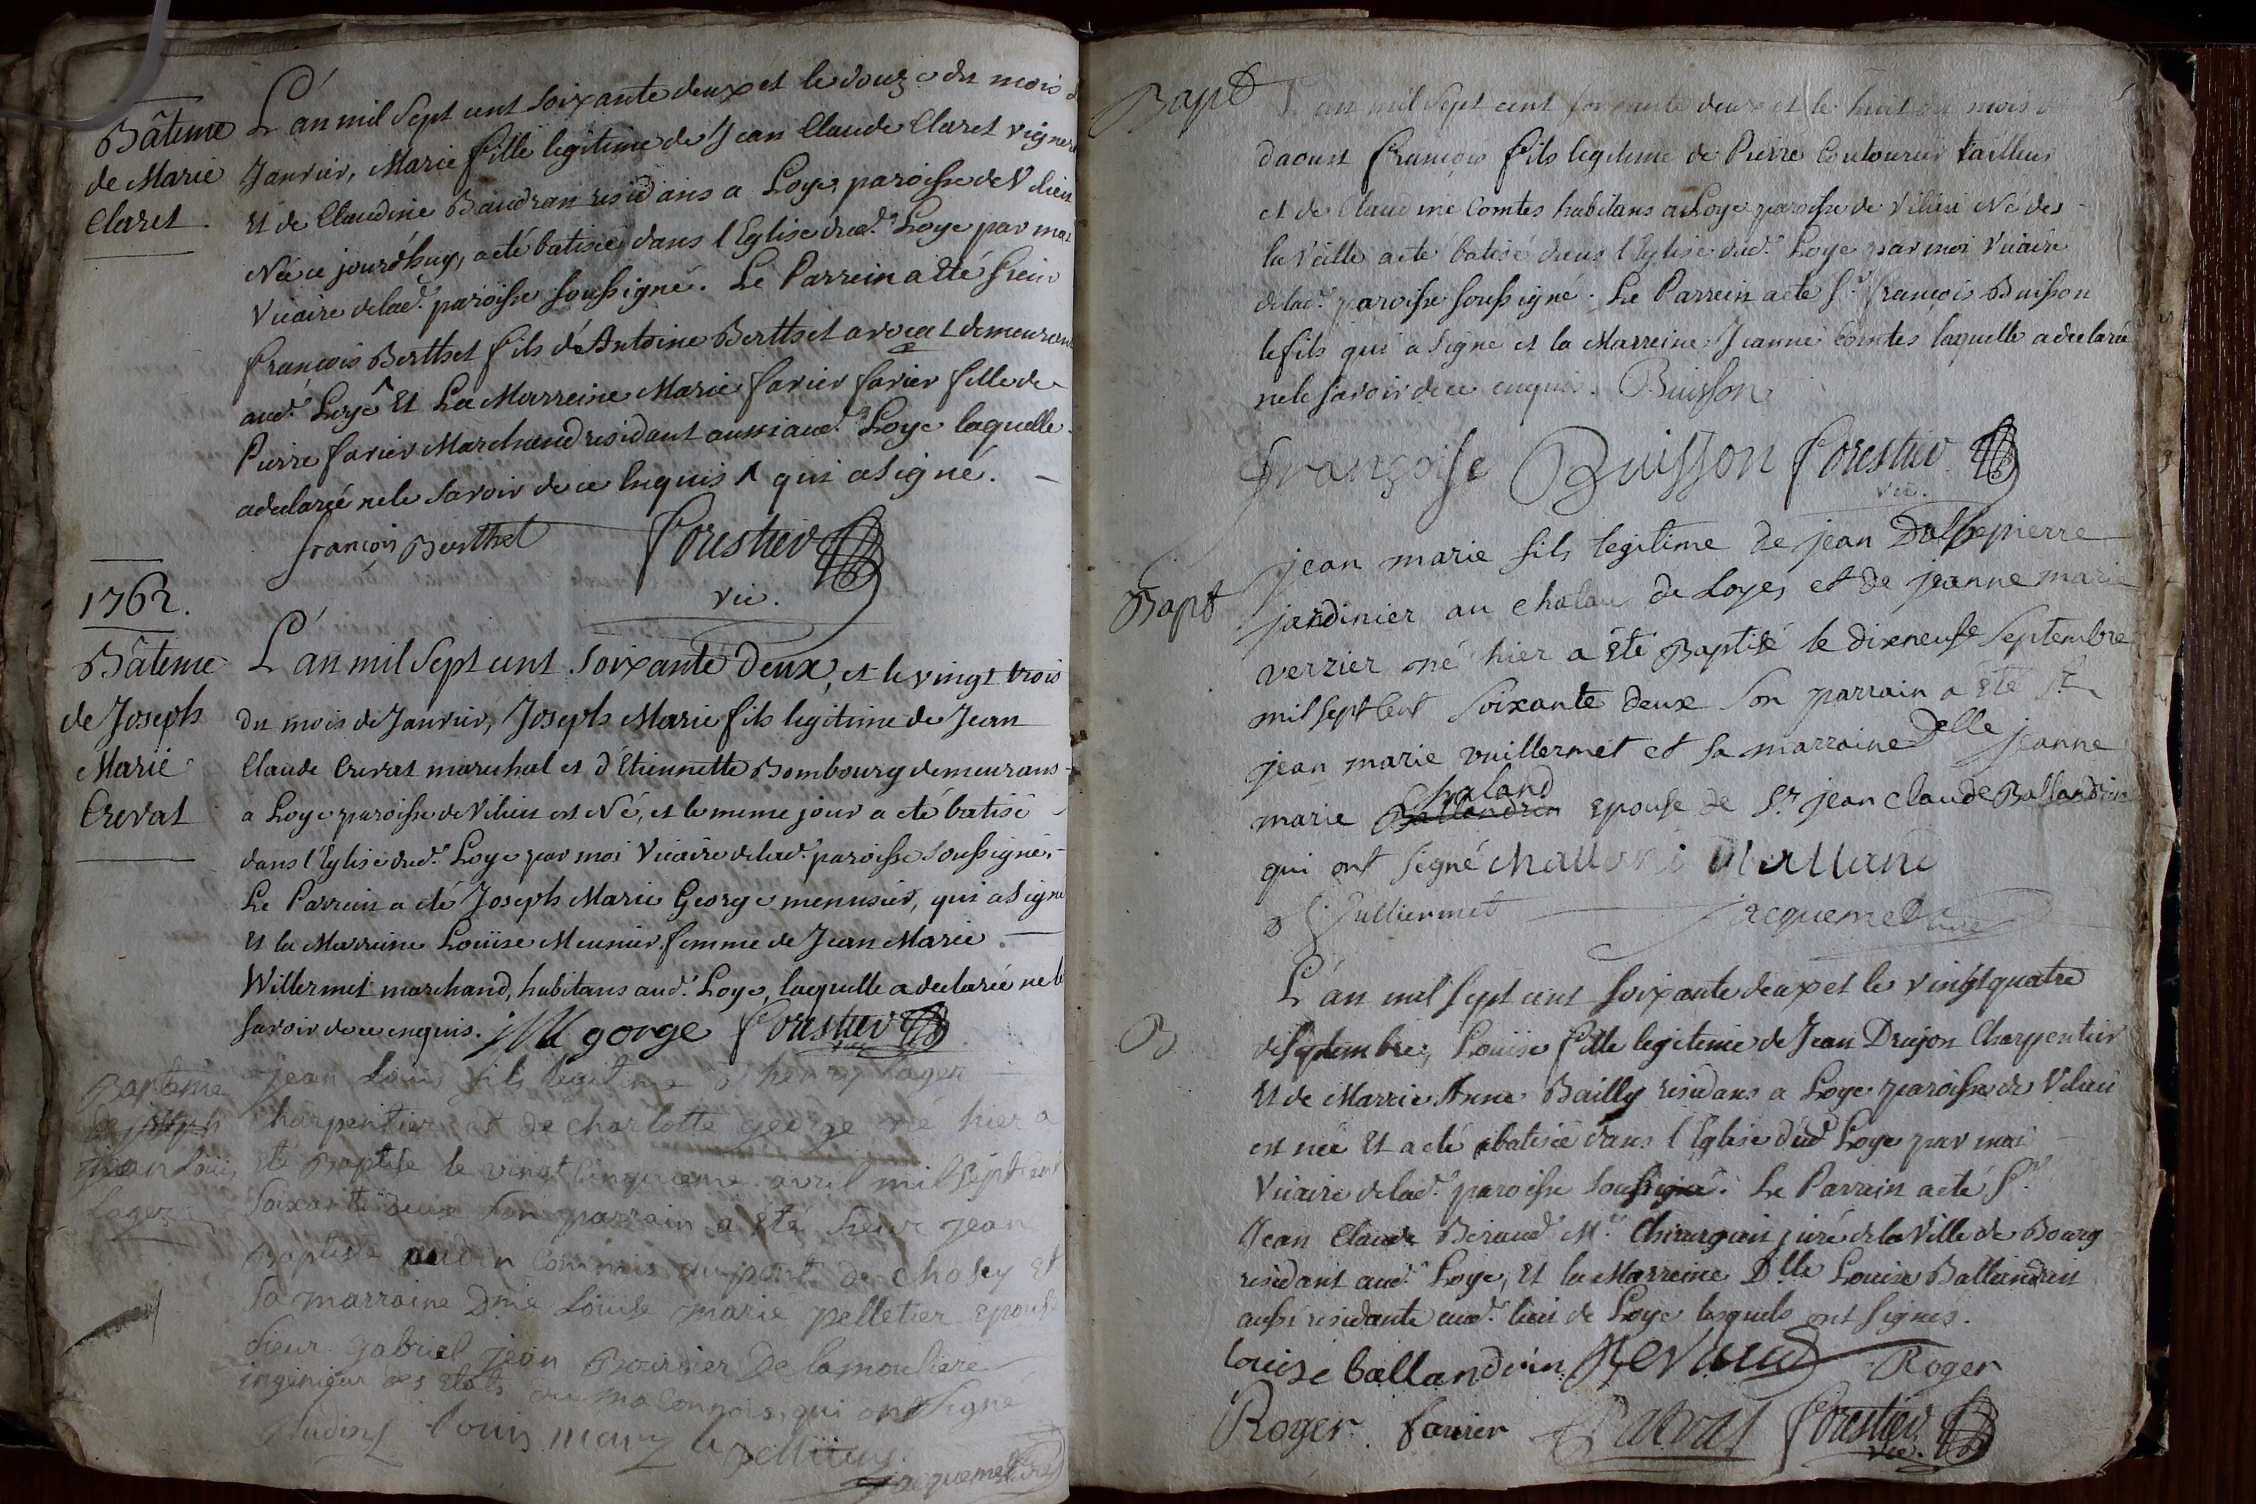 Bâteme
de Marie
Claret.
L'an mil Sept cent Soixante deux et le douze du mois d
Janvier, Marie fille legitime de Jean Claude Claret vigner
Et de Claudine Baudran residans a Loye paroisse de Vilieu
Née ce jourd'huy, a été batisée dans l'Eglise dud. Loye par moi
Vicaire de lad. paroisse soussigné. Le Parrein a Eté Sieur
françois Berthet fils d'Antoine Berthet avocat demeurant
aud. Loye ^ Et La Marreine Marie favier favier fille de
Pierre favier Marchand residant aussi aud. Loye laquelle
a declarée ne le savoir de ce Enquis ^ qui a signé.
françois Berthet Forestier
vic.
1762.
Bâteme
de Joseph
Marie
Crevat
L'an mil Sept cent Soixante Deux, et le vingt trois
du mois de Janvier, Joseph Marie fils legitime de Jean
Claude Crevat marechal et d'Etiennette Bombourg demeurans
a Loye paroisse de Vilieu est Né, et le meme jour a eté batisé
dans l'Eglise dud. Loye par moi Vicaire de lad. paroisse soussigné.
Le Parrein a eté Joseph Marie George menusier, qui a signé
Et la Marreine Loüise Meunier femme de Jean Marie
Willermet marchand, habitans aud. Loye, laquelle a declarée ne le
savoir de ce enquis. JM gorge Forestier
vic
Bapteme
de joseph
jean Louis
Lager
jean Louis fils legitime d'henry Lager
charpentier et de charlotte george né hier a
Eté Baptisé le vingt cinquieme avril mil sept cent
soixante deux son parrain a Eté Sieur jean
Baptiste audin commis au port de chasey et
sa marraine Dme Loüise marie pelletier Epouse
Sieur gabriel jean Bournier De lamouliere
ingenieur des Etats du maconnois, qui ont signé
Audin louis mary le pelletier
jacquemet curé
Bapt
L'an mil Sept cent soixante deux et le huit du mois
daoust françois fils legitime de Pierre Coutourier tailleur
et de Claudine Comtes habitans a Loye paroisse de Vilieu Né des
la veille a eté batisé dans l'Eglise dud. Loye par moi Vicaire
de lad. paroisse soussigné. Le Parrein a eté Sr. françois Buisson
le fils qui a signé et la Marreine Jeanne Comtes laquelle a declarée
ne le savoir de ce enquis. Buisson
françoise Buisson Forestier
vic.
Bapt
jean marie fils legitime de jean Dalbepierre
jardinier au chatau de Loyes et de jeanne marie
verzier né hier a Eté Baptisé le dixneufe Septembre
mil sept Cent Soixante deux son parrain a Eté Sr
jean marie vuillermet et sa marraine Delle jeanne
chaland
marie Ballandrin Epouse de Sr jean claude Ballandrin
qui ont signé challand
Vulliermet jacquemet curé
B
L'an mil Sept cent soixante deux et le vingt quatre
de Septembre, Louise fille legitime de Jean Drujon Charpentier
Et de Marie Anne Bailly residans a Loye paroisse de Vilieu
est née Et a eté batisée dans l'Eglise dud. Loye par moi
Vicaire de lad. paroisse soussigné. Le Parrain a eté Sr.
Jean Claude Beraud Me. Chirurgien juré de la Ville de Bourg
residant aud. Loye, Et la Marreine Dlle Louise Ballandrin
aussi residante aud. lieu de Loye lesquels ont signés.
Louise ballandrin Roger
Roger favier Forestier
vic.